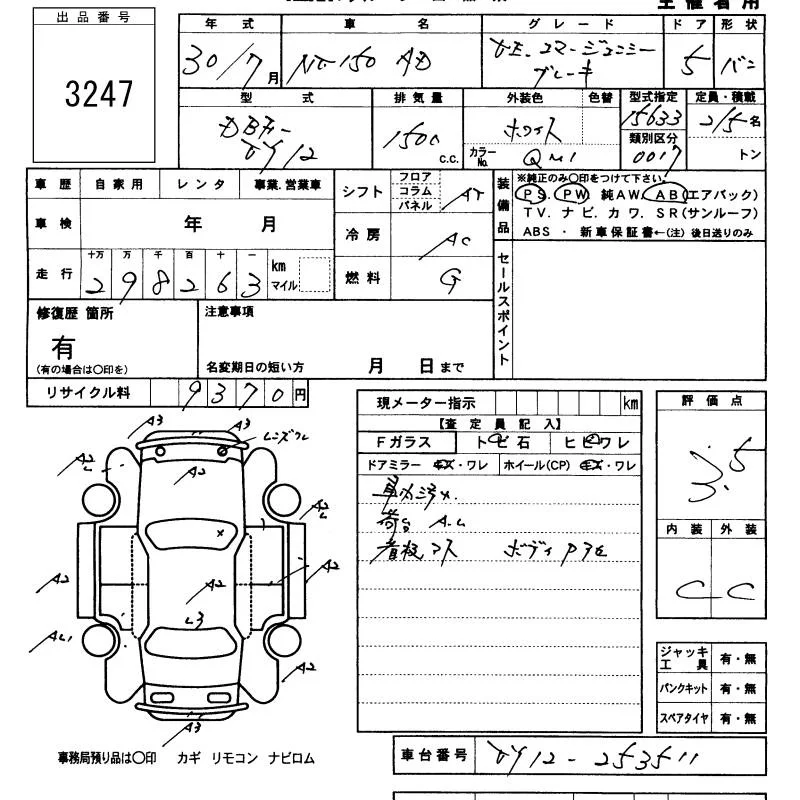 主催者用
出品番号
3247
年式 車名 グレード ドア 形状
30/7月 NV-150 AD VE.エマージェンシーブレーキ 5 バン
型式 排気量 外装色 色替 型式指定 定員・積載
DBF-VY12 1500 C.C. ホワイト 15633 2/5名
カラーNo. QM1 類別区分 0017 トン
車歴 自家用 レンタ 事業.営業車
車検 年 月
走行 十万 万 千 百 十 一
298263 km マイル
シフト フロア コラム パネル AT
冷房 AC
燃料 G
装備品
※純正のみ〇印をつけて下さい。
PS. PW 純AW. AB(エアバック)
TV. ナビ. カワ. SR(サンルーフ)
ABS ・ 新車保証書←(注) 後日送りのみ
セールスポイント
修復歴 箇所
有
(有の場合は〇印を)
注意事項
名変期日の短い方 月 日まで
リサイクル料 9370円
現メーター指示 km
【査定員記入】
Fガラス トビ石 ヒビワレ
ドアミラー キズ・ワレ ホイール(CP) キズ・ワレ
車内汚れ.
荷台 A.U
看板アト ボディ
評価点
3.5
内装 外装
C C
A3 A3
レンズワレ
A2 A2
A2
x
A2 A2 A2
U3
AU1
A2
A3
ジャッキ工具 有・無
パンクキット 有・無
スペアタイヤ 有・無
事務局預り品は〇印 カギ リモコン ナビロム
車台番号 VY12-253511